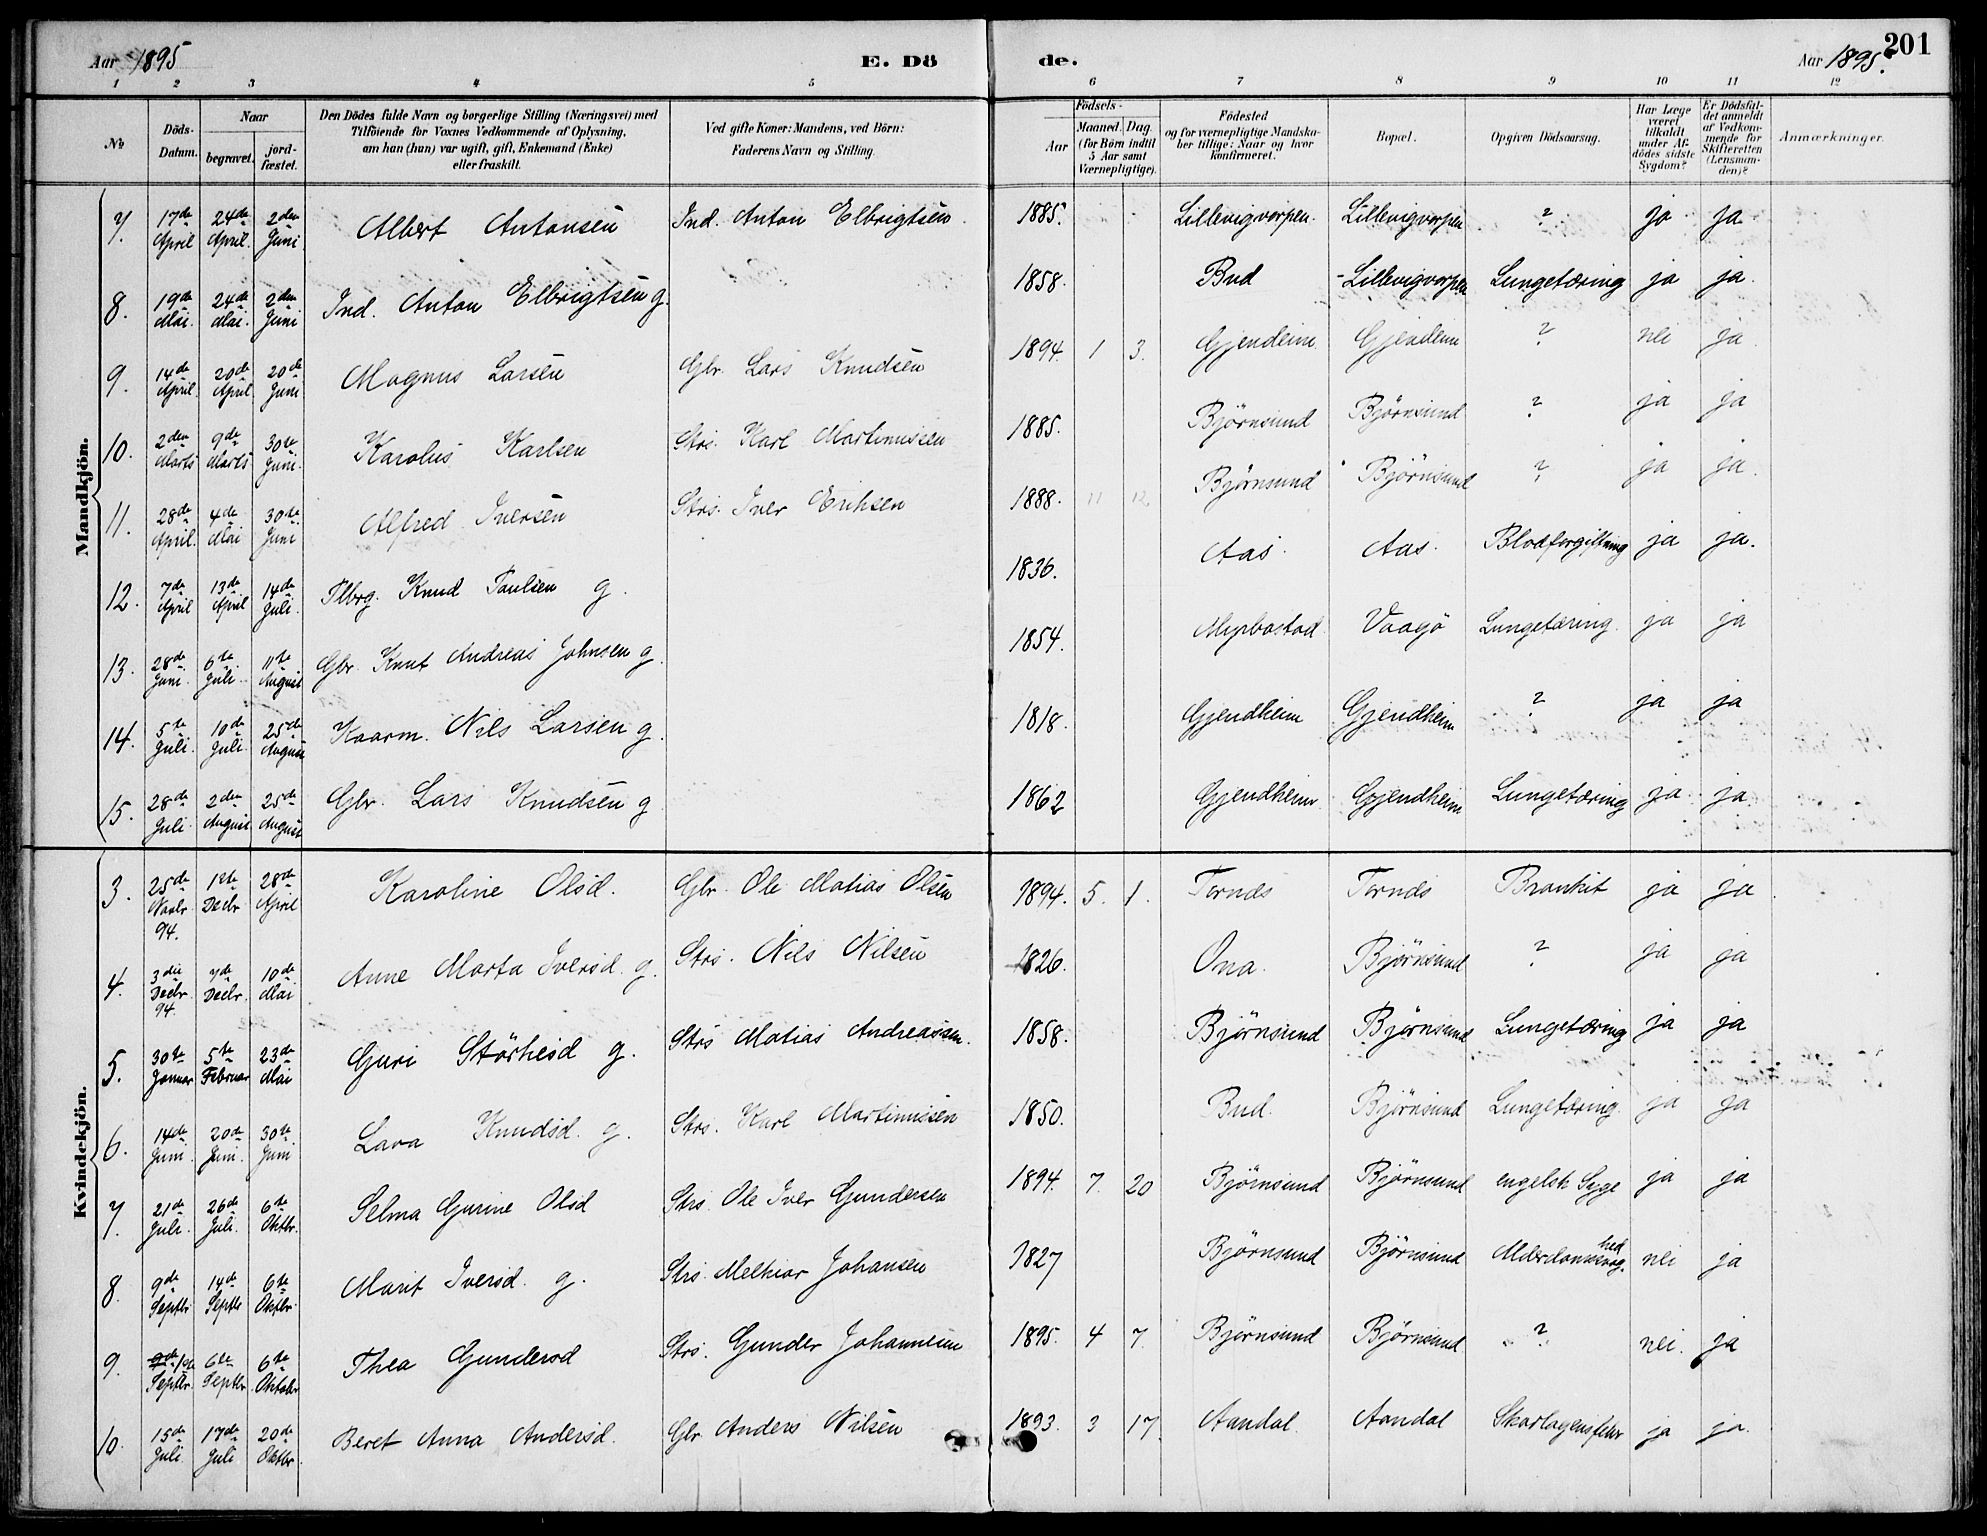 Aar 1895 E. Dö de. Aar 1895. 201
1 2 3 4 5 6 7 8 9 10 11 12
№ Döds-Datum. Naar begravet. jord-fæstet. Den Dödes fulde Navn og borgerlige Stilling (Næringsvei) med Tilföiende for Voxnes Vedkommende af Oplysning, om han (hun) var ugift, gift, Enkemand (Enke) eller fraskilt. Ved gifte Koner: Mandens, ved Börn: Faderens Navn og Stilling. Födsels- Aar Maaned. Dag. (for Börn indtil 5 Aar samt Værnepligtige). Födested og for værnepligtige Mandskaber tillige: Naar og hvor konfirmeret. Bopæl. Opgiven Dödsaarsag. Har Læge været tilkaldt under Afdödes sidste Sygdom? Er Dödsfaldet anmeldt af Vedkommende for Skifteretten (Lensmanden)? Anmærkninger.
Mandkjön.
7. 17de April 24de April. 2den Juni Albert Antonsen Ind. Anton Elbrigtsen 1885. Lillevigvorpen. Lillevigvorpen ? ja ja
8. 19de Mai. 24de Mai. 2den Juni Ind. Anton Elbrigtsen g. 1858. Bud Lillevigvorpen Lungetæring ja ja.
9. 14de April. 20de April 20de Juni Magnus Larsen Gbr. Lars Knudsen 1894. 1 3. Gjendeim Gjendeim ? nei ja.
10. 2den Marts 9de Marts 30te Juni. Karolus Karlsen Strs. Karl Martinussen 1885. Björnsund Björnsund ? ja ja
11. 28de April. 4de Mai 30te Juni Alfred Iversen Strs. Iver Eriksen 1888. 11 12. Björnsund Björnsund ? ja ja.
12. 7de April 13de April 14de Juli. Flbrg. Knud Paulsen g. 1836. Aas. Aas. Blodforgiftning ja ja.
13. 28de Juni. 6te Juli. 11te August Gbr. Knut Andreas Johnsen g. 1854. Myrbostad Vaagö Lungetæring. ja ja
14. 5te Juli. 10de Juli. 25de August Kaarm. Nils Larsen g. 1818. Gjendheim Gjendheim ? ja ja
15. 28de Juli 2den August 25de August Gbr. Lars Knudsen g 1862 Gjendheim Gjendheim Lungetæring ja ja
Kvindekjön.
3. 25de Novbr. 94. 1ste Decbr 28de April Karoline Olsd. Gbr. Ole Matias Olsen 1894. 5. 1. Tornds Tornds Bronkit ja ja
4. 3die Decbr. 94. 7de Decbr. 10de Mai Anne Marta Iversd. g. Strs. Nils Nilsen 1826. Ona. Björnsund ? ja ja
5. 30te Januar 5te Februar 23de Mai Guri Störkesd g. Strs Matias Andreassen. 1858. Björnsund Björnsund Lungetæring ja ja
6. 14de Juni. 20de Juni. 30te Juni Lava Knudsd. g. Strs. Karl Martinussen 1850. Bud. Björnsund Lungetæring. ja ja
7. 21de Juli. 26de Juli. 6te Oktbr. Selma Gurine Olsd Strs. Ole Iver Gundersen 1894. 7. 20 Björnsund Björnsund engelsk Syge ja ja
8. 9de Septbr 14de Septbr 6te Oktbr. Marit Iversd. g. Strs. Melkior Johansen 1827 Björnsund Björnsund Alderdomssvaghed. nei ja
9. 1ste Septbr. 6te Septbr. 6te Oktober Thea Gundersd Strs. Gunder Johannesen 1895. 4 7. Björnsund Björnsund ? nei. ja
10. 15de Juli. 17de Juli 20de Oktbr. Beret Anna Andersd. Gbr. Anders Nilsen 1893. 3 17. Aandal. Aandal Skarlagensfeber ja ja.